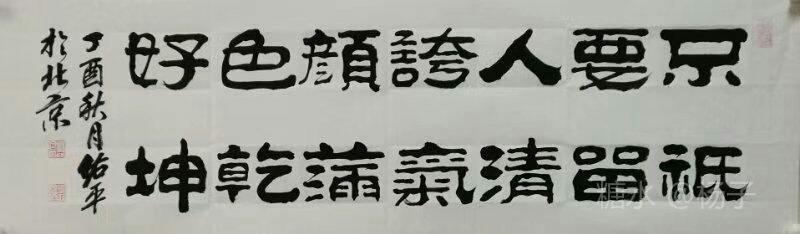 只要人誇顔色好
祇留清氣滿乾坤
丁酉秋月佑平
於北京
糖水 @杨子